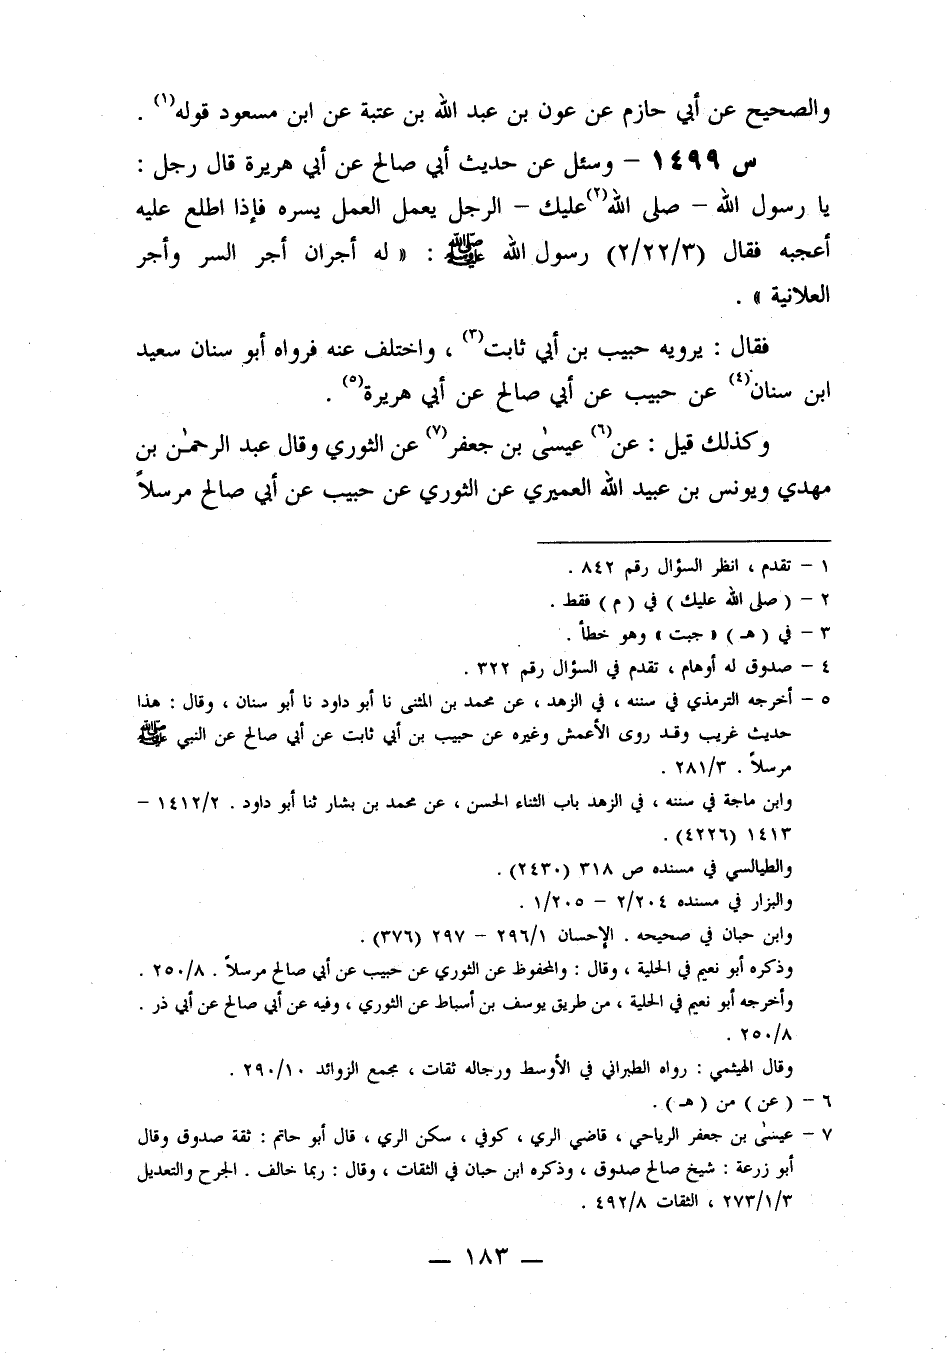 والصحيح عن أبي حازم عن عون بن عبد الله بن عتبة عن ابن مسعود قوله(١) .
س ١٤٩٩ – وسئل عن حديث أبي صالح عن أبي هريرة قال رجل :
يا رسول الله – صلى الله(٢) عليك – الرجل يعمل العمل يسره فإذا اطلع عليه
أعجبه فقال (٢/٢٢/٣) رسول الله ﷺ : « له أجران أجر السر وأجر
العلانية » .
فقال : يرويه حبيب بن أبي ثابت(٣) ، واختلف عنه فرواه أبو سنان سعيد
ابن سنان(٤) عن حبيب عن أبي صالح عن أبي هريرة(٥) .
وكذلك قيل : عن(٦) عيسىٰ بن جعفر(٧) عن الثوري وقال عبد الرحمٰن بن
مهدي ويونس بن عبيد الله العميري عن الثوري عن حبيب عن أبي صالح مرسلاً
١ – تقدم ، انظر السؤال رقم ٨٤٢ .
٢ – ( صلى الله عليك ) في ( م ) فقط .
٣ – في ( هـ ) « جبت » وهو خطأ .
٤ – صدوق له أوهام ، تقدم في السؤال رقم ٣٢٢ .
٥ – أخرجه الترمذي في سننه ، في الزهد ، عن محمد بن المثنى نا أبو داود نا أبو سنان ، وقال : هذا
حديث غريب وقد روى الأعمش وغيره عن حبيب بن أبي ثابت عن أبي صالح عن النبي ﷺ
مرسلاً . ٢٨١/٣ .
وابن ماجة في سننه ، في الزهد باب الثناء الحسن ، عن محمد بن بشار ثنا أبو داود . ١٤١٢/٢ –
١٤١٣ (٤٢٢٦) .
والطيالسي في مسنده ص ٣١٨ (٢٤٣٠) .
والبزار في مسنده ٢/٢٠٤ – ١/٢٠٥ .
وابن حبان في صحيحه . الإحسان ٢٩٦/١ – ٢٩٧ (٣٧٦) .
وذكره أبو نعيم في الحلية ، وقال : والمحفوظ عن الثوري عن حبيب عن أبي صالح مرسلاً . ٢٥٠/٨ .
وأخرجه أبو نعيم في الحلية ، من طريق يوسف بن أسباط عن الثوري ، وفيه عن أبي صالح عن أبي ذر .
٢٥٠/٨ .
وقال الهيثمي : رواه الطبراني في الأوسط ورجاله ثقات ، مجمع الزوائد ٢٩٠/١٠ .
٦ – ( عن ) من ( هـ ) .
٧ – عيسىٰ بن جعفر الرياحي ، قاضي الري ، كوفي ، سكن الري ، قال أبو حاتم : ثقة صدوق وقال
أبو زرعة : شيخ صالح صدوق ، وذكره ابن حبان في الثقات ، وقال : ربما خالف . الجرح والتعديل
٢٧٣/١/٣ ، الثقات ٤٩٢/٨ .
— ١٨٣ —